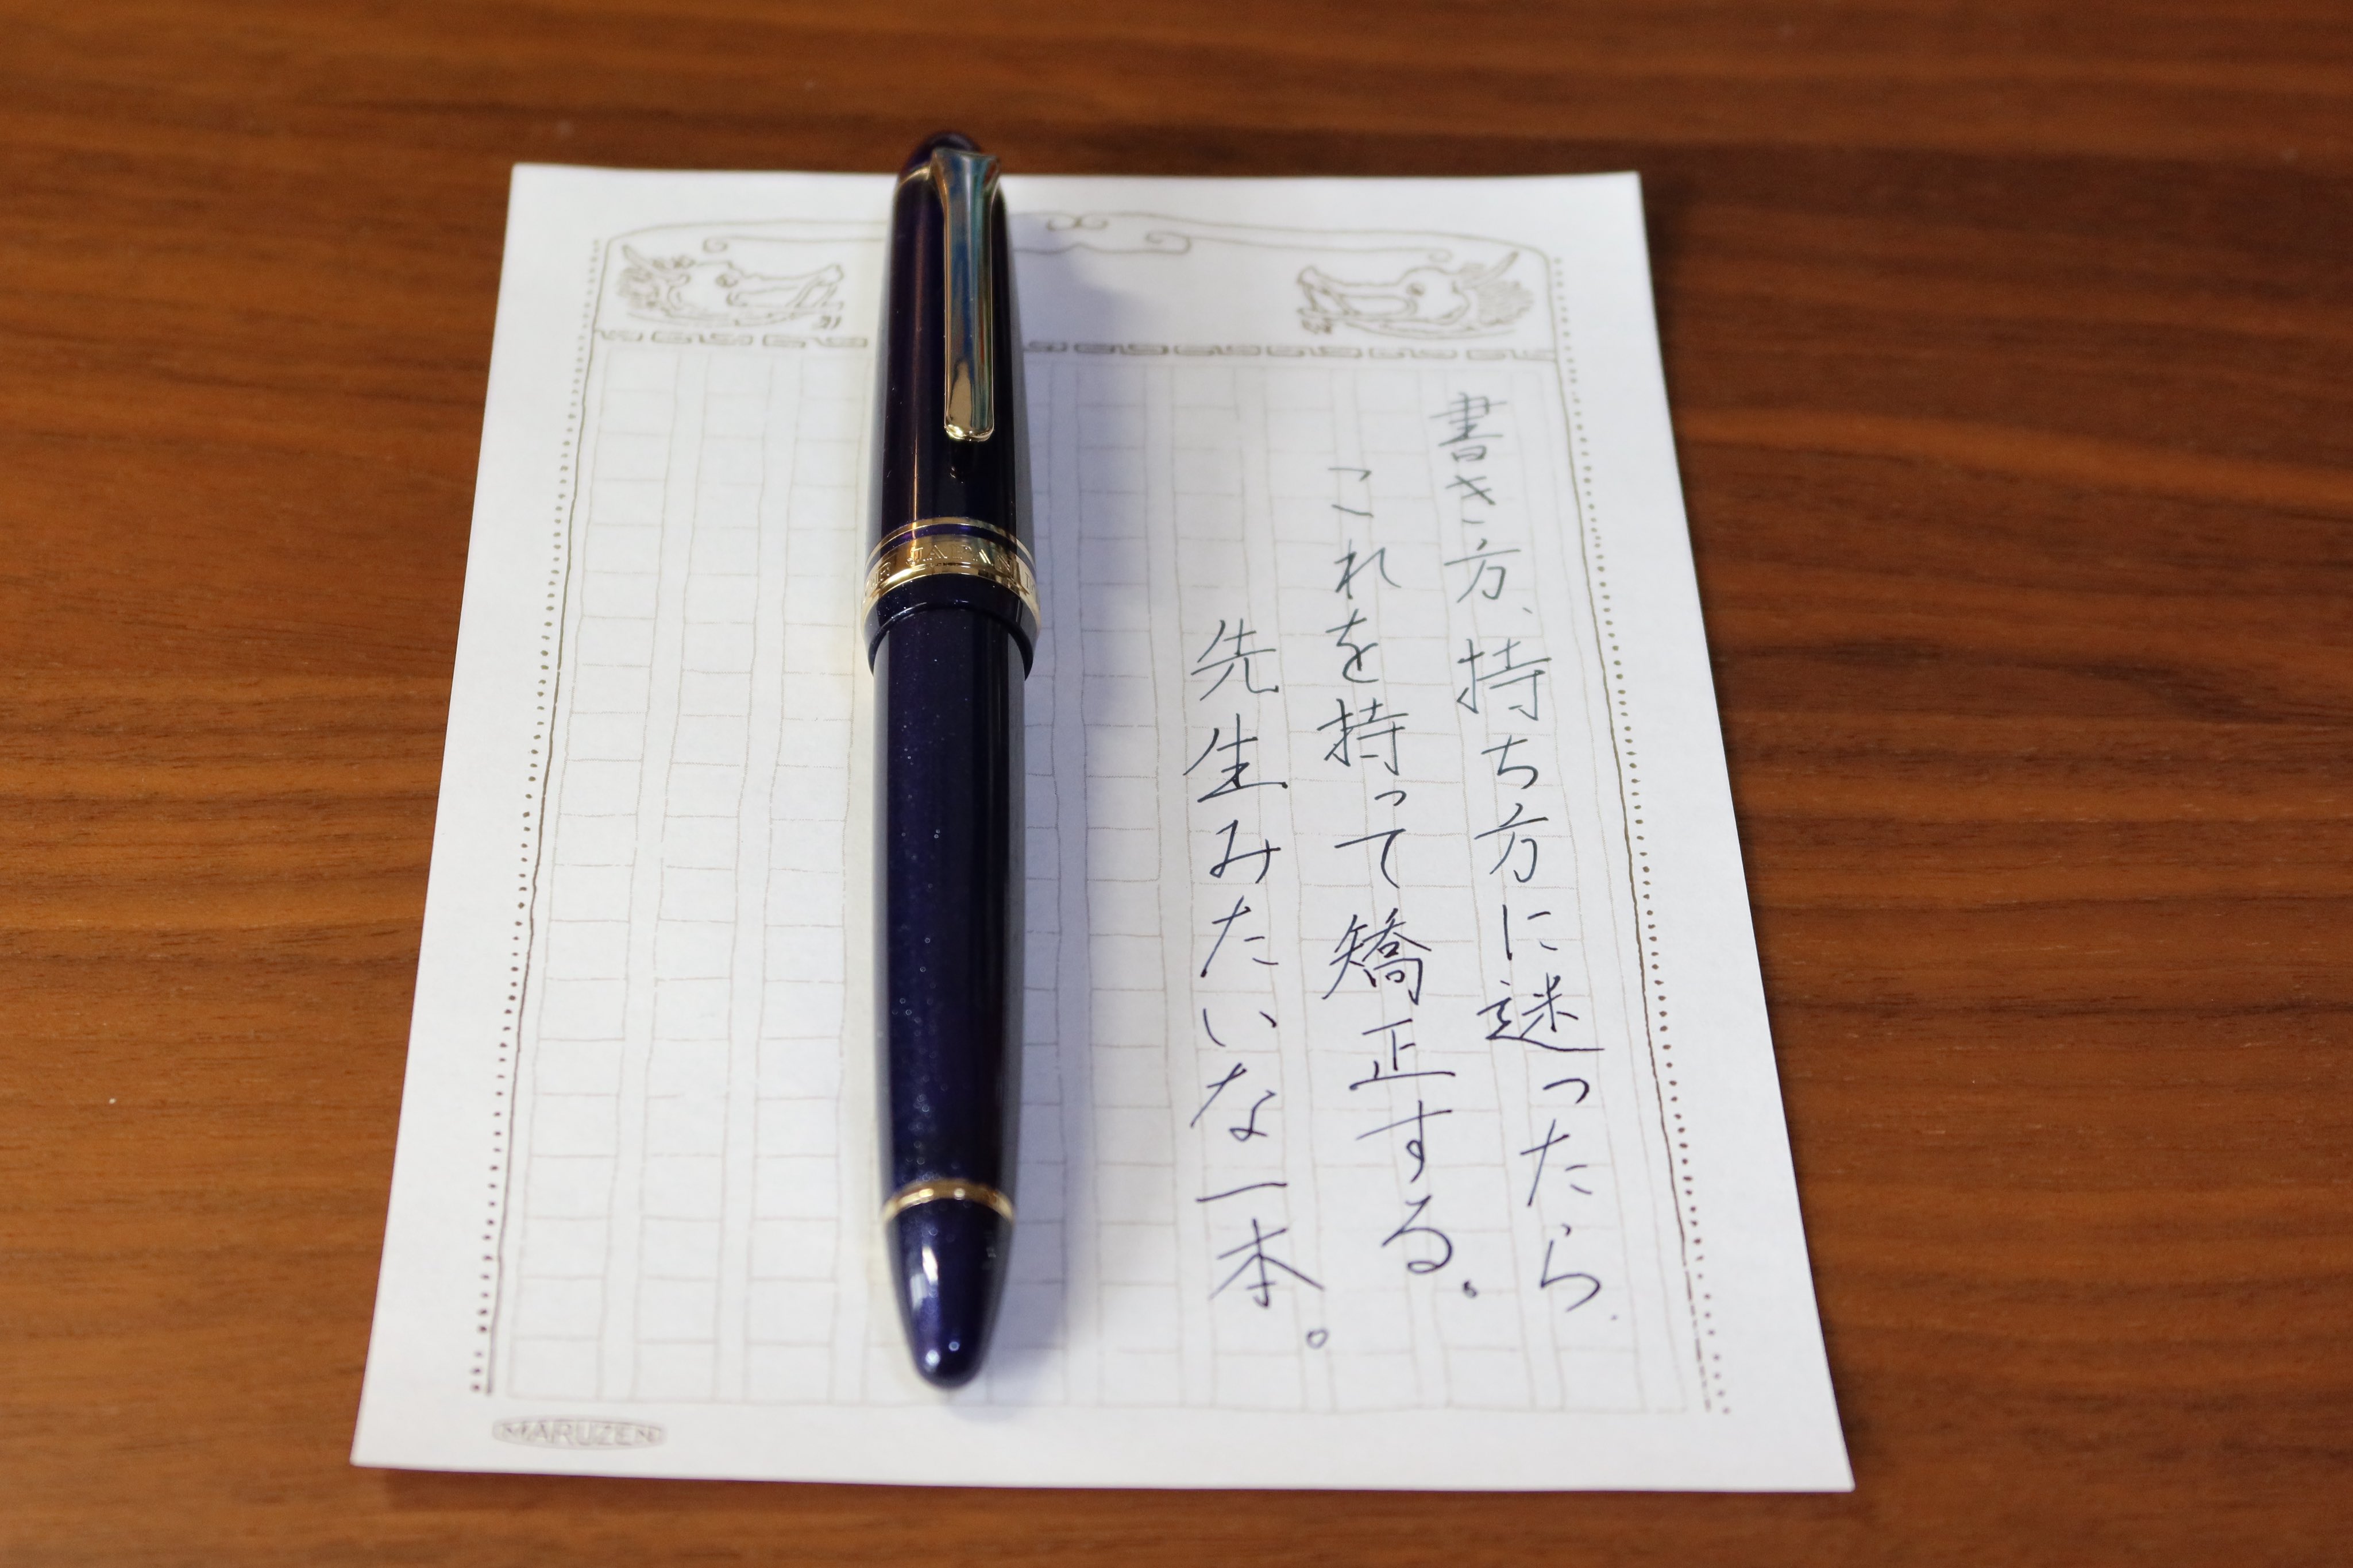 書き方、持ち方に迷ったら、
これを持って矯正する。
先生みたいな一本。
JAPAN
MARUZEN